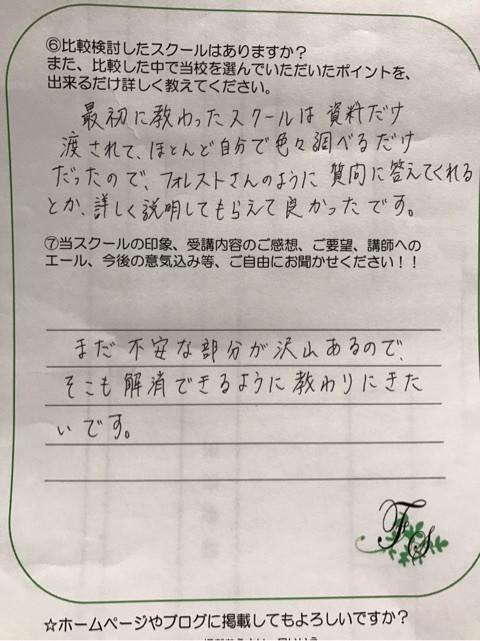 ⑥比較検討したスクールはありますか？
また、比較した中で当校を選んでいただいたポイントを、
出来るだけ詳しく教えてください。
最初に教わったスクールは資料だけ
渡されて、ほとんど自分で色々調べるだけ
だったので、フォレストさんのように質問に答えてくれる
とか、詳しく説明してもらえて良かったです。
⑦当スクールの印象、受講内容のご感想、ご要望、講師への
エール、今後の意気込み等、ご自由にお聞かせください！！
まだ不安な部分が沢山あるので、
そこも解消できるように教わりにきた
いです。
FS
☆ホームページやブログに掲載してもよろしいですか？